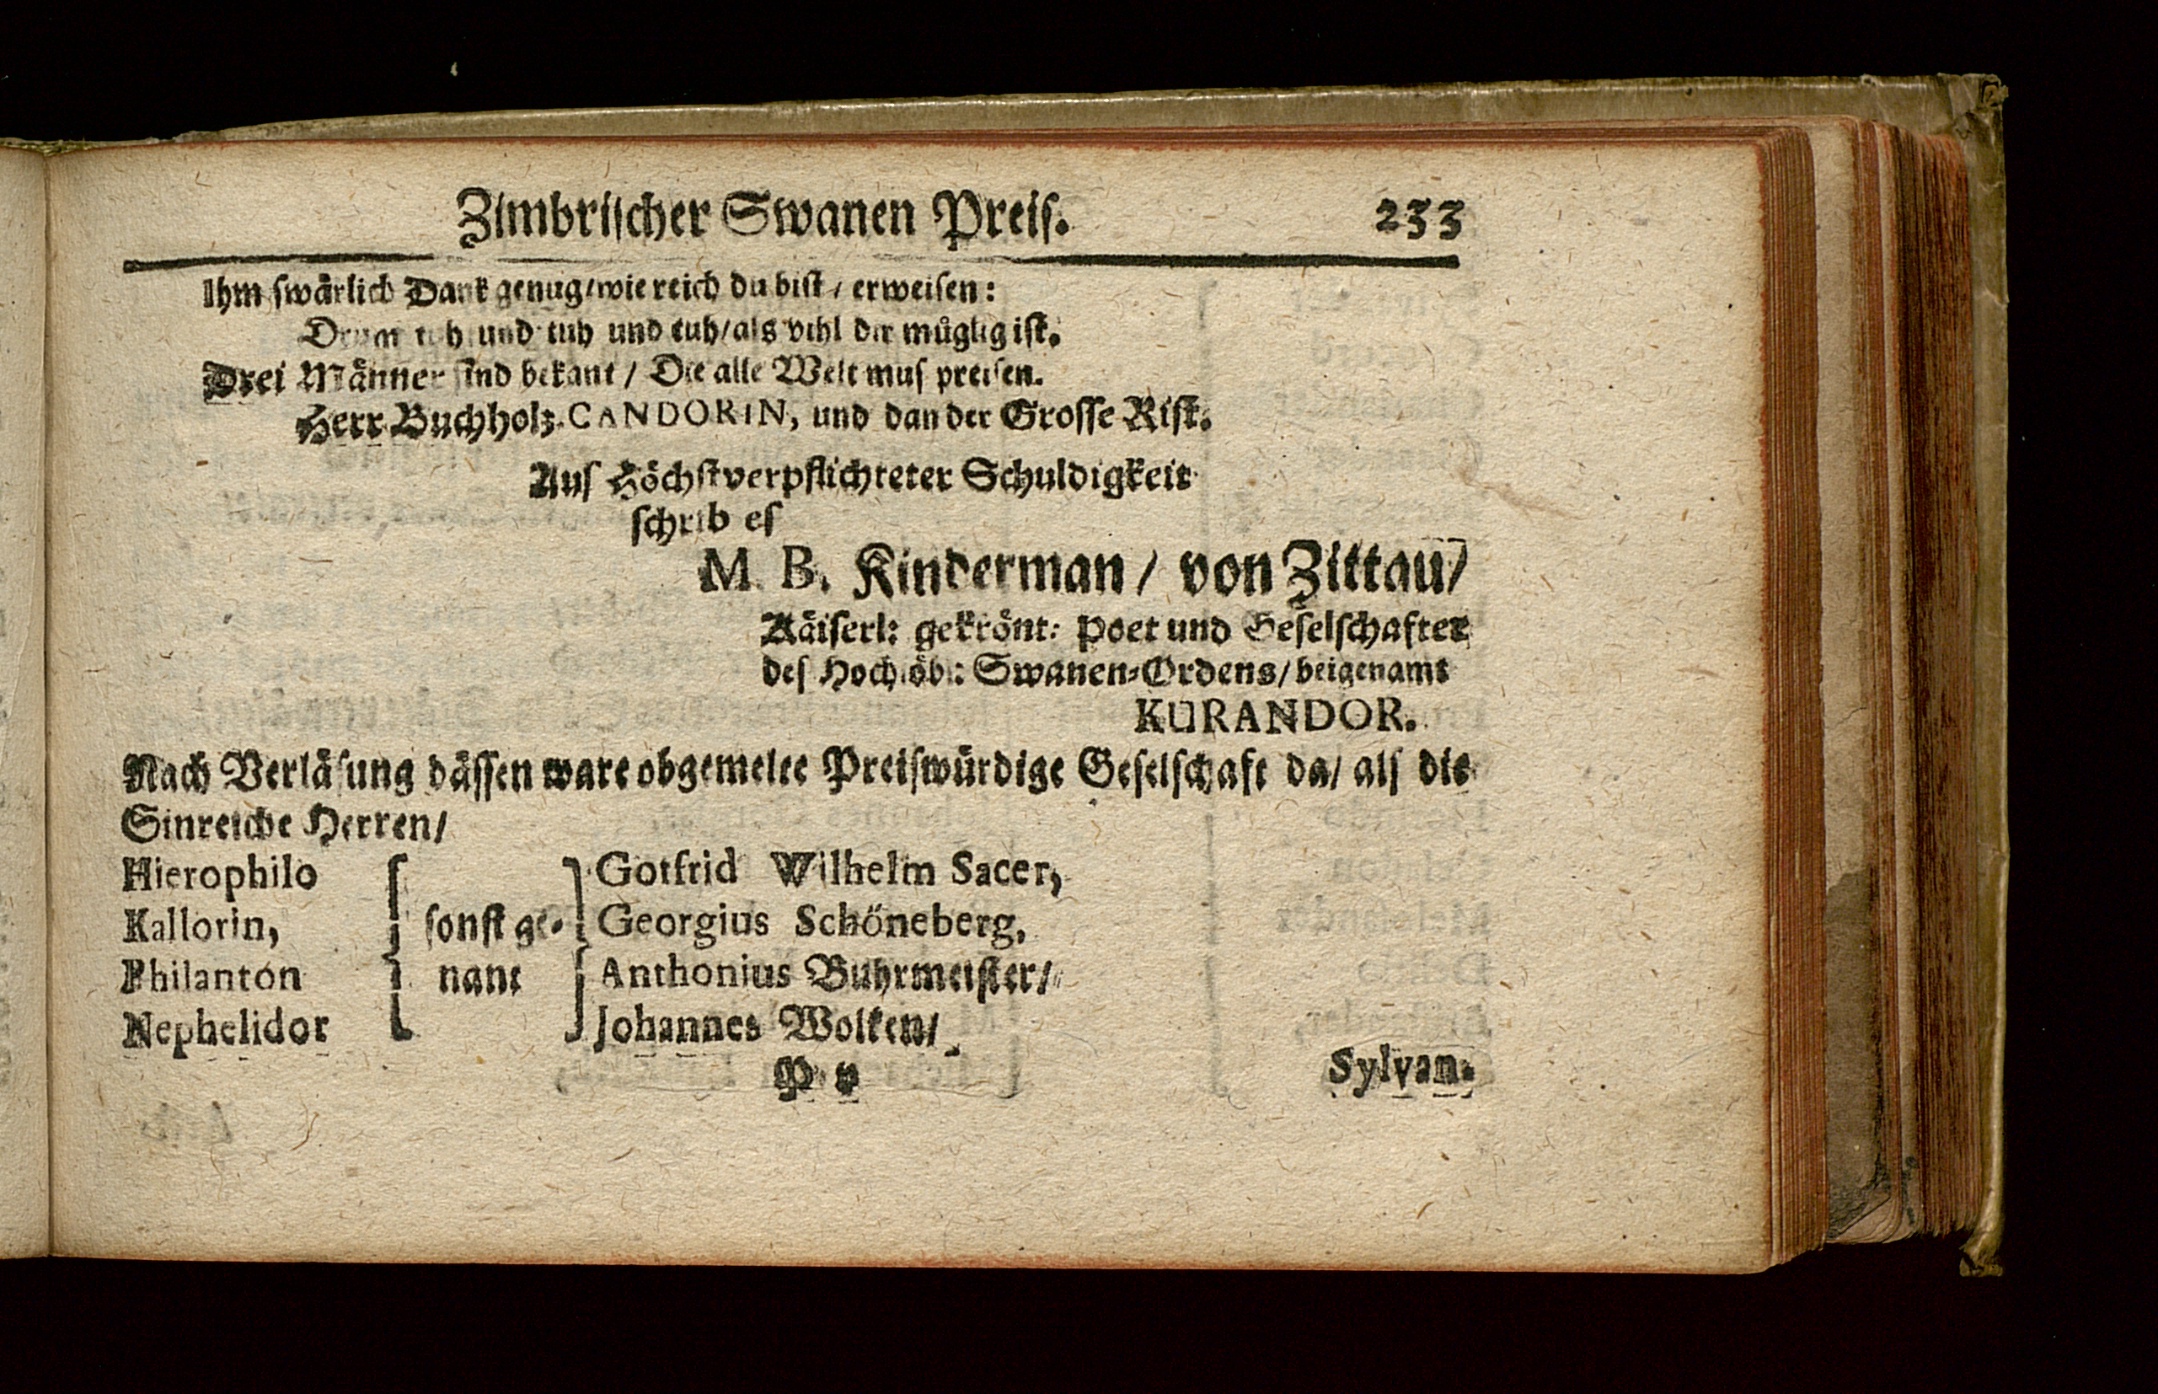 Zimbriſcher Swanen Preiſ. 233
Ihm ſwärlich Dank genug/wie reich du biſt / erweiſen:
Drum tuh und tuh und tuh/als vihl dir müglig iſt.
Drei Männer ſind bekant / Die alle Welt muſ preiſen.
Herr Buchholz. CANDORIN, und dan der Groſſe Riſt.
Auſ Höchſtverpflichteter Schuldigkeit
ſchrib eſ
M. B. Kinderman / von Zittau/
Käiſerl: gekrönt: Poet und Geſelſchafter
deſ Hochlöbl: Swanen-Ordens/ beigenamt
KURANDOR.
Nach Verläſung däſſen ware obgemelte Preiſwürdige Geſelſchaft da/ alſ die
Sinreiche Herren/
Hierophilo Gotfrid Wilhelm Sacer,
Kallorin, ſonſt ge- Georgius Schöneberg,
Philanton nant Anthonius Buhrmeiſter/
Nephelidor Johannes Wolken/
P v Sylvan.